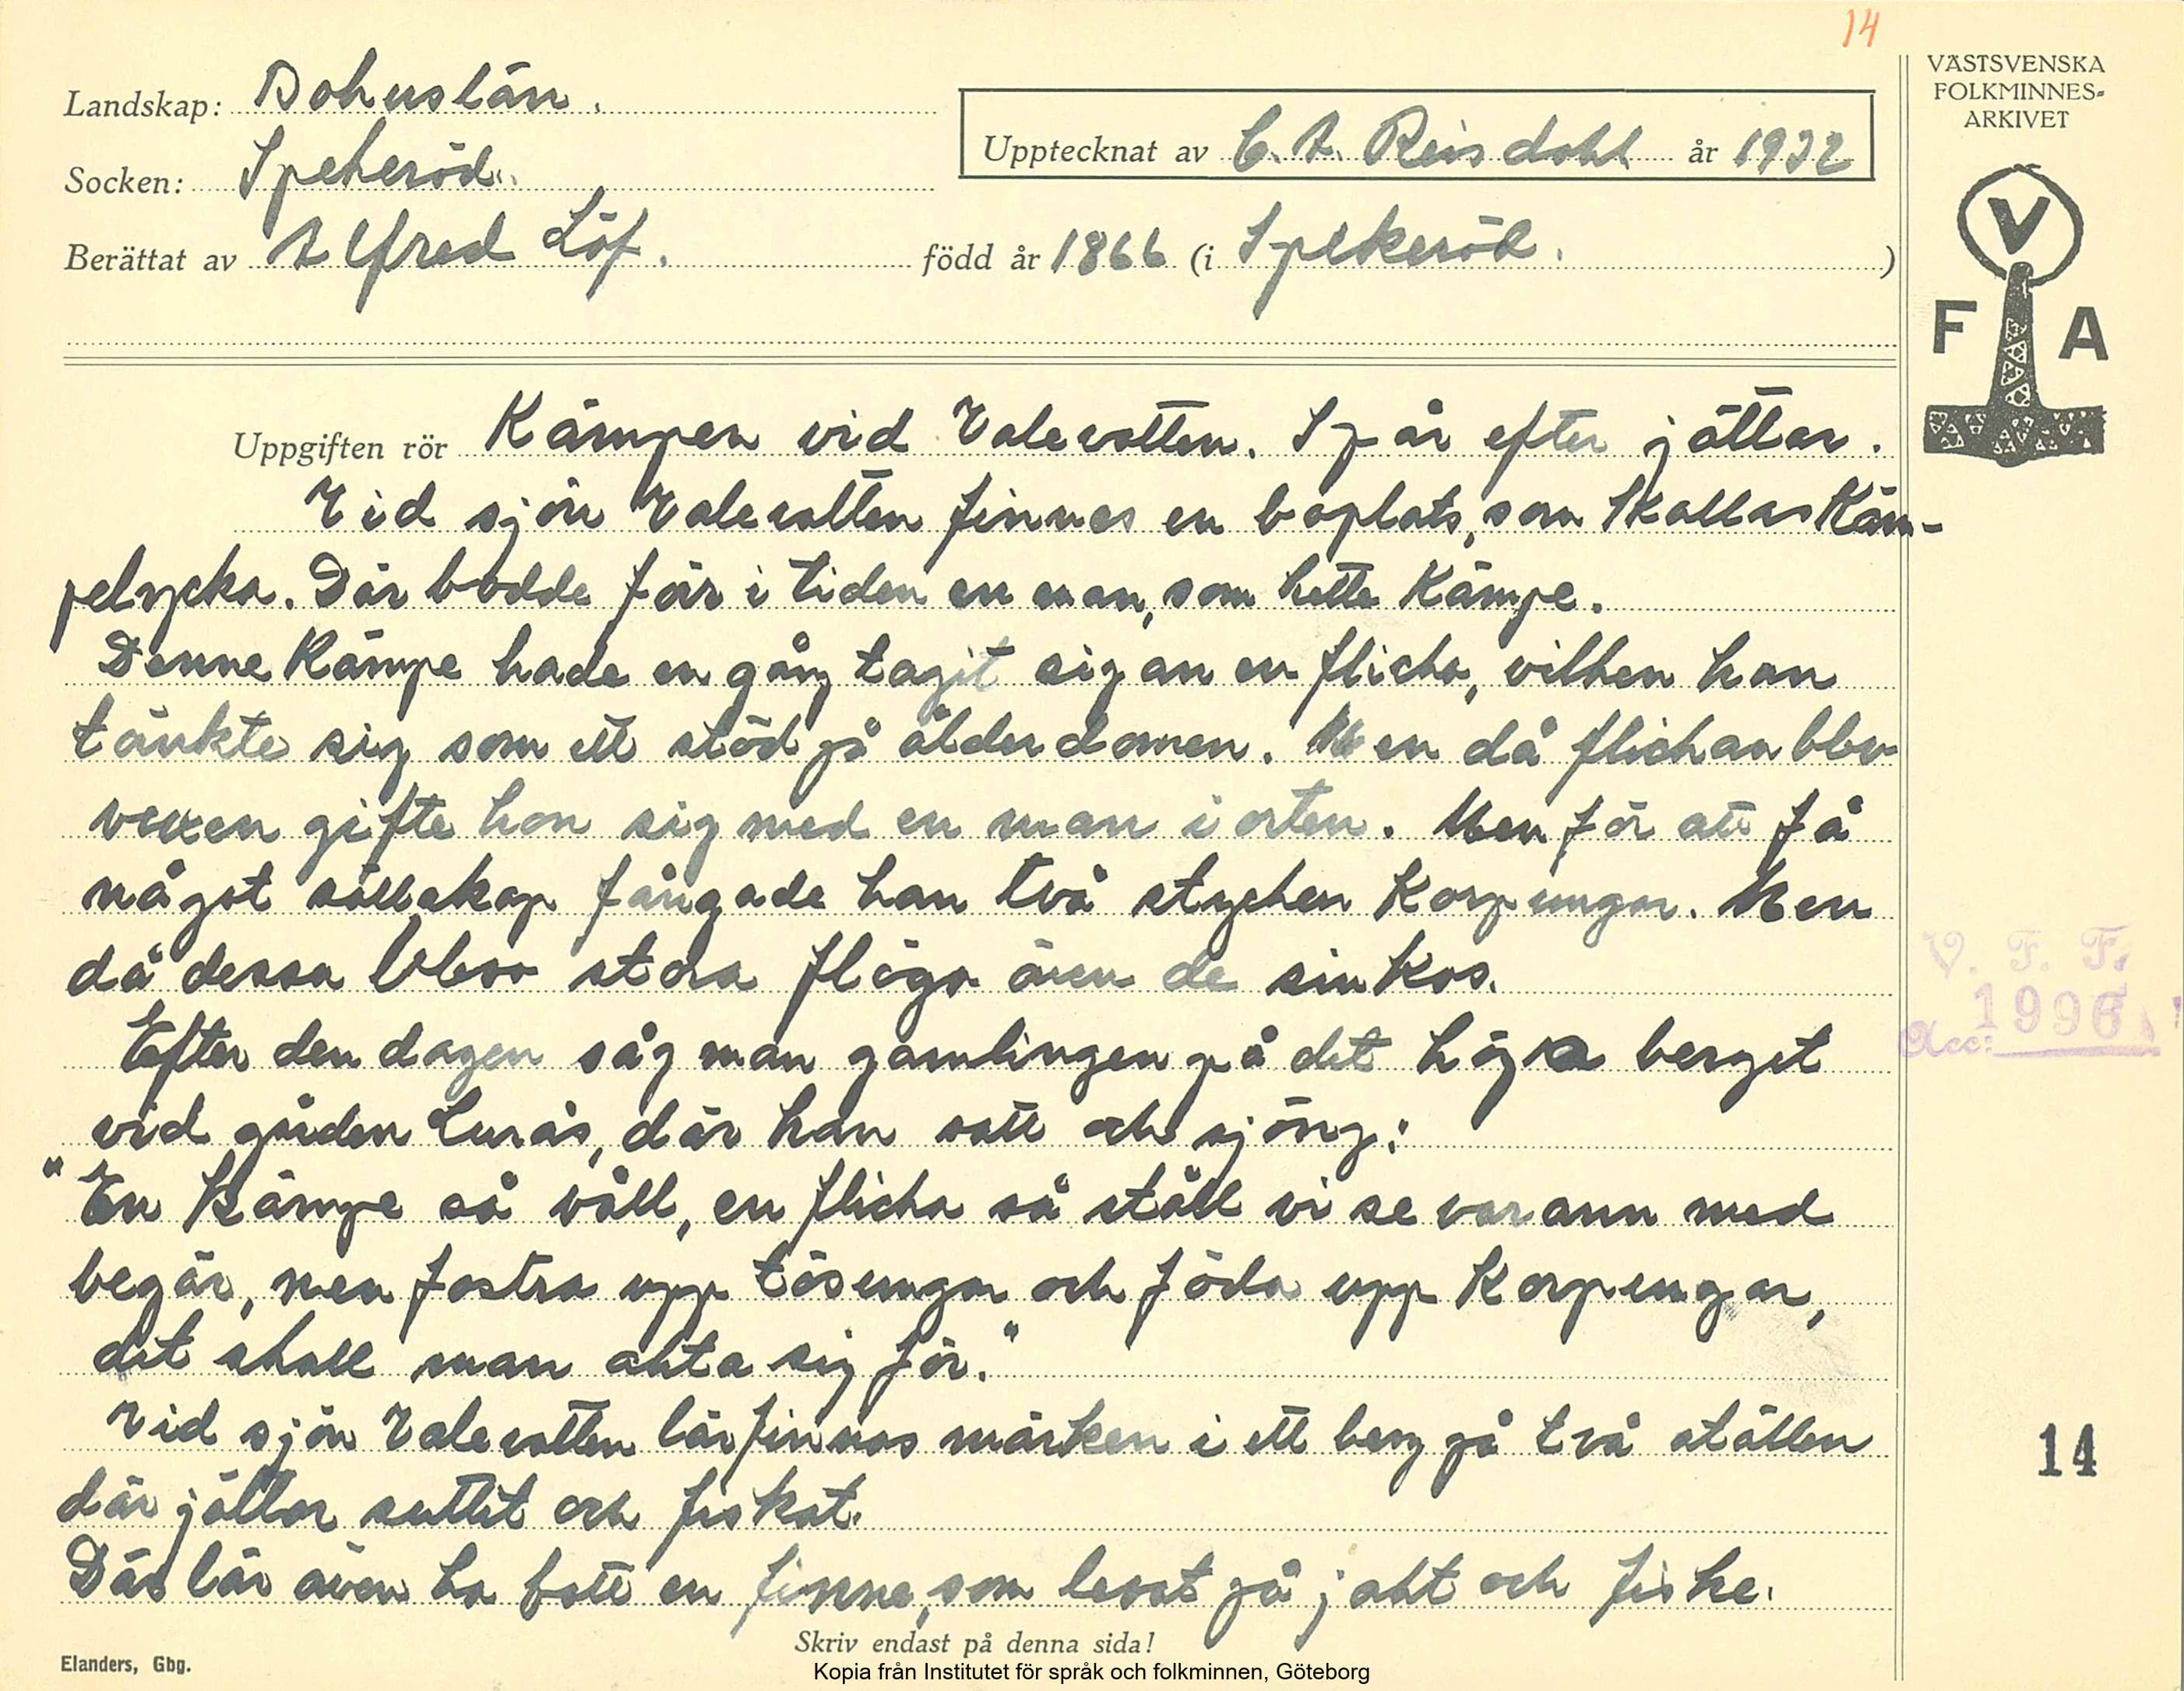 14
VÄSTSVENSKA
FOLKMINNES-
ARKIVET
Landskap: Bohuslän.
Upptecknat av C. A. Reis dahl år 1932
Socken: Spekeröd.
Berättat av Alfred Löf. född år 1866 (i Spekeröd. )
V
F A
Uppgiften rör Kämpen vid Valevatten. Spår efter jättar.
Vid sjön Valevatten finnes en boplats, som kallas Käm-
pelycka. Där bodde förr i tiden en man, som hette Kämpe.
Denne Kämpe hade en gång tagit sig an en flicka, vilken han
tänkte sig som ett stöd på ålderdomen. Men då flickan blev
vuxen gifte hon sig med en man i orten. Men för att få
något sällskap fångade han två stycken korpungar. Men
då dessa blevo stora flögo även de sin kos.
Efter den dagen såg man gamlingen på det höga berget
vid gården Lurås, där han satt och sjöng:
"En kämpe så väll, en flicka så ställ vi se varann med
begär, men fostra upp tösungar och föda upp korpungar,
det skall man akta sig för."
Vid sjön Valevatten lär finnas märken i ett berg på två ställen
där jättar suttit och fiskat.
Där lär även ha bott en finne, som levat på jakt och fiske.
V. F. F.
Acc: 1996
14
Skriv endast på denna sida!
Elanders, Gbg.
Kopia från Institutet för språk och folkminnen, Göteborg